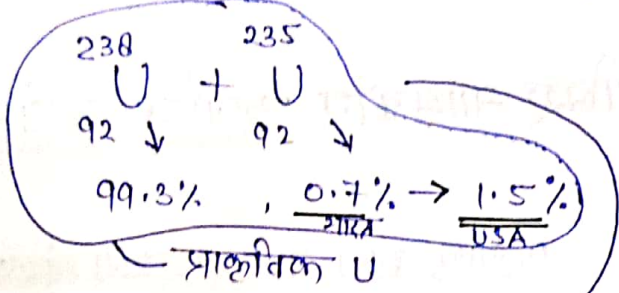 238 235
U + U
92 ↓ 92 ↓
99.3% , 0.7% → 1.5%
भारत USA
प्राकृतिक U